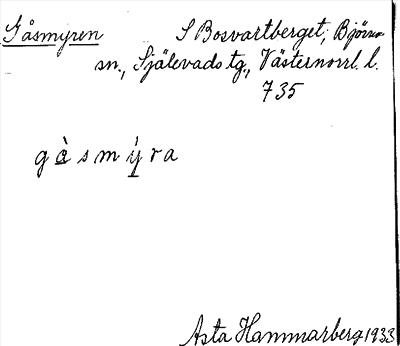 Gåsmyren S Bosvartberget, Björna
sn., Själevads tg., Västernorrl. l.
735
gåsmýra
Asta Hammarberg 1933